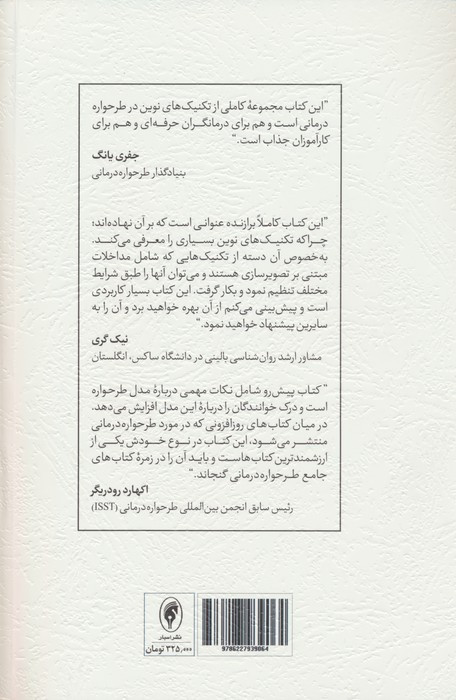 "این کتاب مجموعهٔ کاملی از تکنیک‌های نوین در طرحواره
درمانی است و هم برای درمانگران حرفه‌ای و هم برای
کارآموزان جذاب است."
جفری یانگ
بنیادگذار طرحواره‌درمانی
"این کتاب کاملاً برازنده عنوانی است که بر آن نهاده‌اند؛
چراکه تکنیک‌های نوین بسیاری را معرفی می‌کند.
به‌خصوص آن دسته از تکنیک‌هایی که شامل مداخلات
مبتنی بر تصویرسازی هستند و می‌توان آنها را طبق شرایط
مختلف تنظیم نمود و بکار گرفت. این کتاب بسیار کاربردی
است و پیش‌بینی می‌کنم از آن بهره خواهید برد و آن را به
سایرین پیشنهاد خواهید نمود."
نیک گری
مشاور ارشد روان‌شناسی بالینی در دانشگاه ساکس، انگلستان
" کتاب پیش‌رو شامل نکات مهمی دربارهٔ مدل طرحواره
است و درک خوانندگان را دربارهٔ این مدل افزایش می‌دهد.
در میان کتاب‌های روزافزونی که در مورد طرحواره‌درمانی
منتشر می‌شود، این کتاب در نوع خودش یکی از
ارزشمندترین کتاب‌هاست و باید آن را در زمرهٔ کتاب‌های
جامع طرحواره‌درمانی گنجاند."
اکهارد رودریگر
رئیس سابق انجمن بین‌المللی طرحواره‌درمانی (ISST)
نشر اسبار
۳۲۵,۰۰۰ تومان
9786227939064